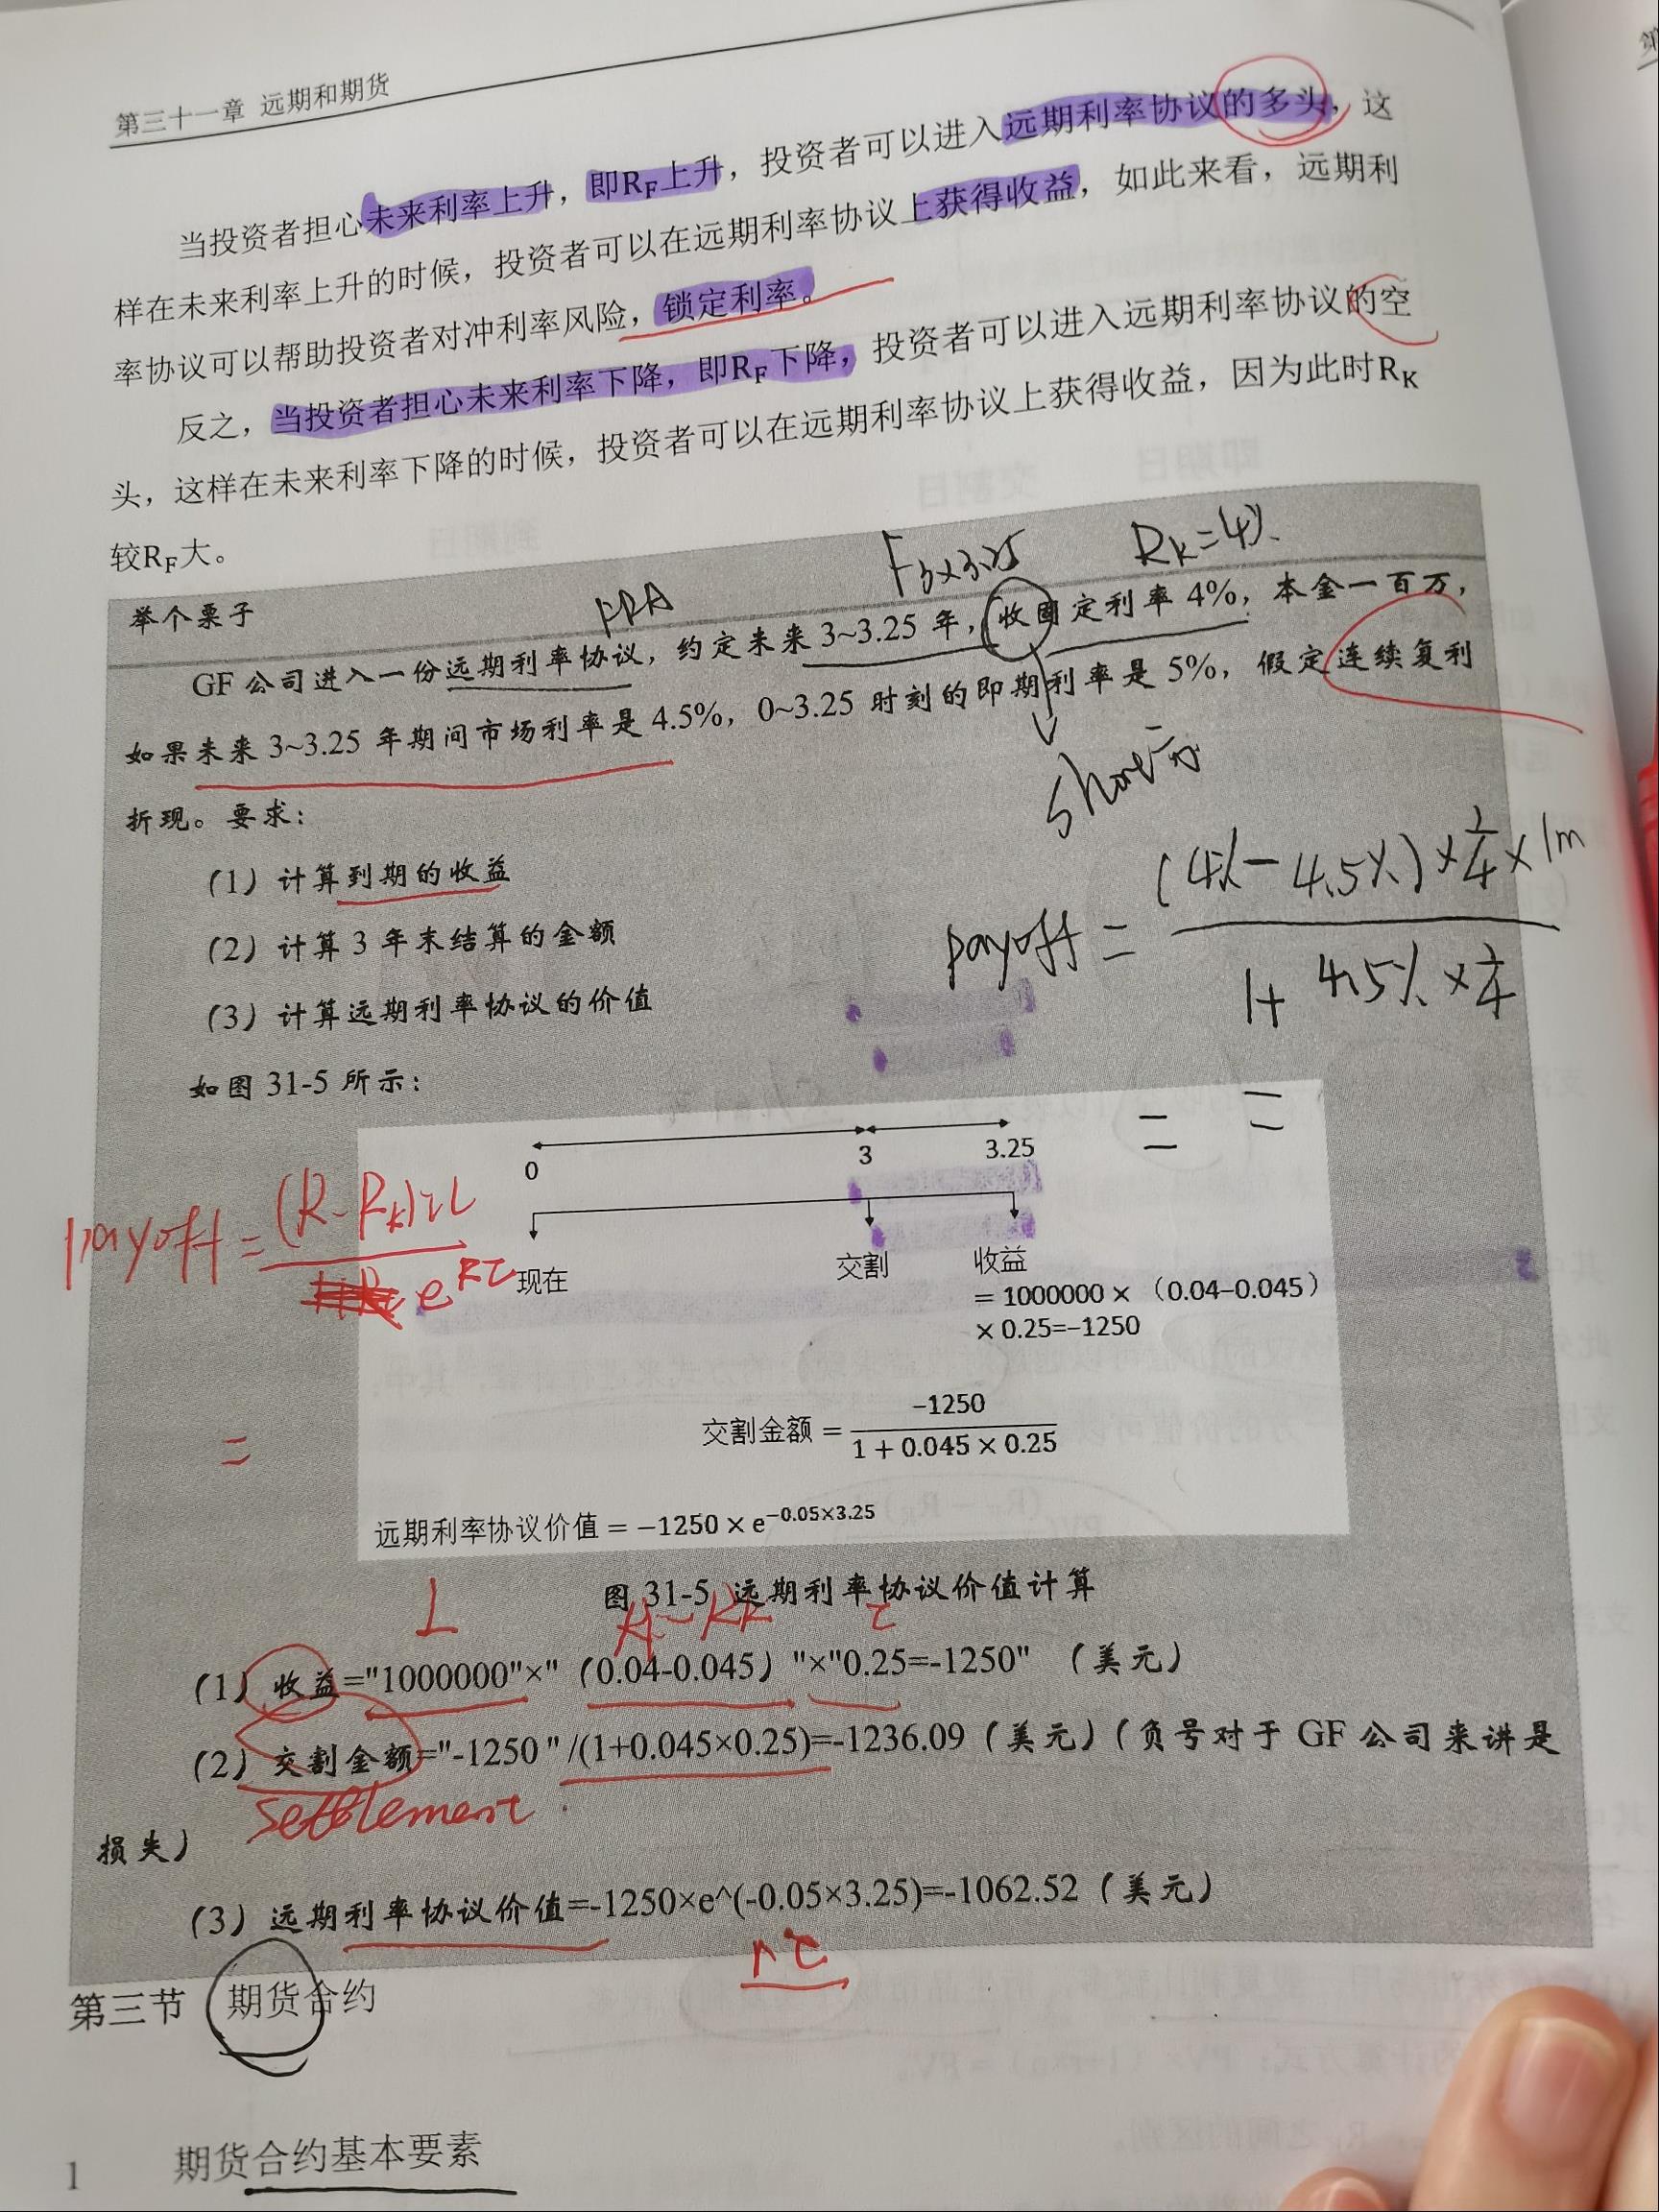 第三十一章 远期和期货
当投资者担心未来利率上升，即RF上升，投资者可以进入远期利率协议的多头，这
样在未来利率上升的时候，投资者可以在远期利率协议上获得收益，如此来看，远期利
率协议可以帮助投资者对冲利率风险，锁定利率。
反之，当投资者担心未来利率下降，即RF下降，投资者可以进入远期利率协议的空
头，这样在未来利率下降的时候，投资者可以在远期利率协议上获得收益，因为此时RK
较RF大。
FRA
F3×3.25
RK=4%
举个栗子
GF 公司进入一份远期利率协议，约定未来 3~3.25 年，收固定利率 4%，本金一百万，
如果未来 3~3.25 年期间市场利率是 4.5%，0~3.25 时刻的即期利率是 5%，假定连续复利
折现。要求：
short方
(1) 计算到期的收益
(2) 计算 3 年末结算的金额
(3) 计算远期利率协议的价值
payoff = (4%-4.5%)×1/4×1m
1+4.5%×1/4
如图 31-5 所示：
= =
0 3 3.25
现在 交割 收益
= 1000000 × （0.04–0.045）
× 0.25=–1250
payoff = (R-Rk)τL
e^Rτ
=
交割金额 = –1250 / 1 + 0.045 × 0.25
远期利率协议价值 = −1250 × e^−0.05×3.25
图 31-5 远期利率协议价值计算
L
τ
(1) 收益="1000000"×"（0.04-0.045）"×"0.25=-1250" （美元）
(2) 交割金额="-1250 " /(1+0.045×0.25)=-1236.09（美元）（负号对于 GF 公司来讲是
settlement
损失）
(3) 远期利率协议价值=-1250×e^(-0.05×3.25)=-1062.52（美元）
rτ
第三节 期货合约
1 期货合约基本要素